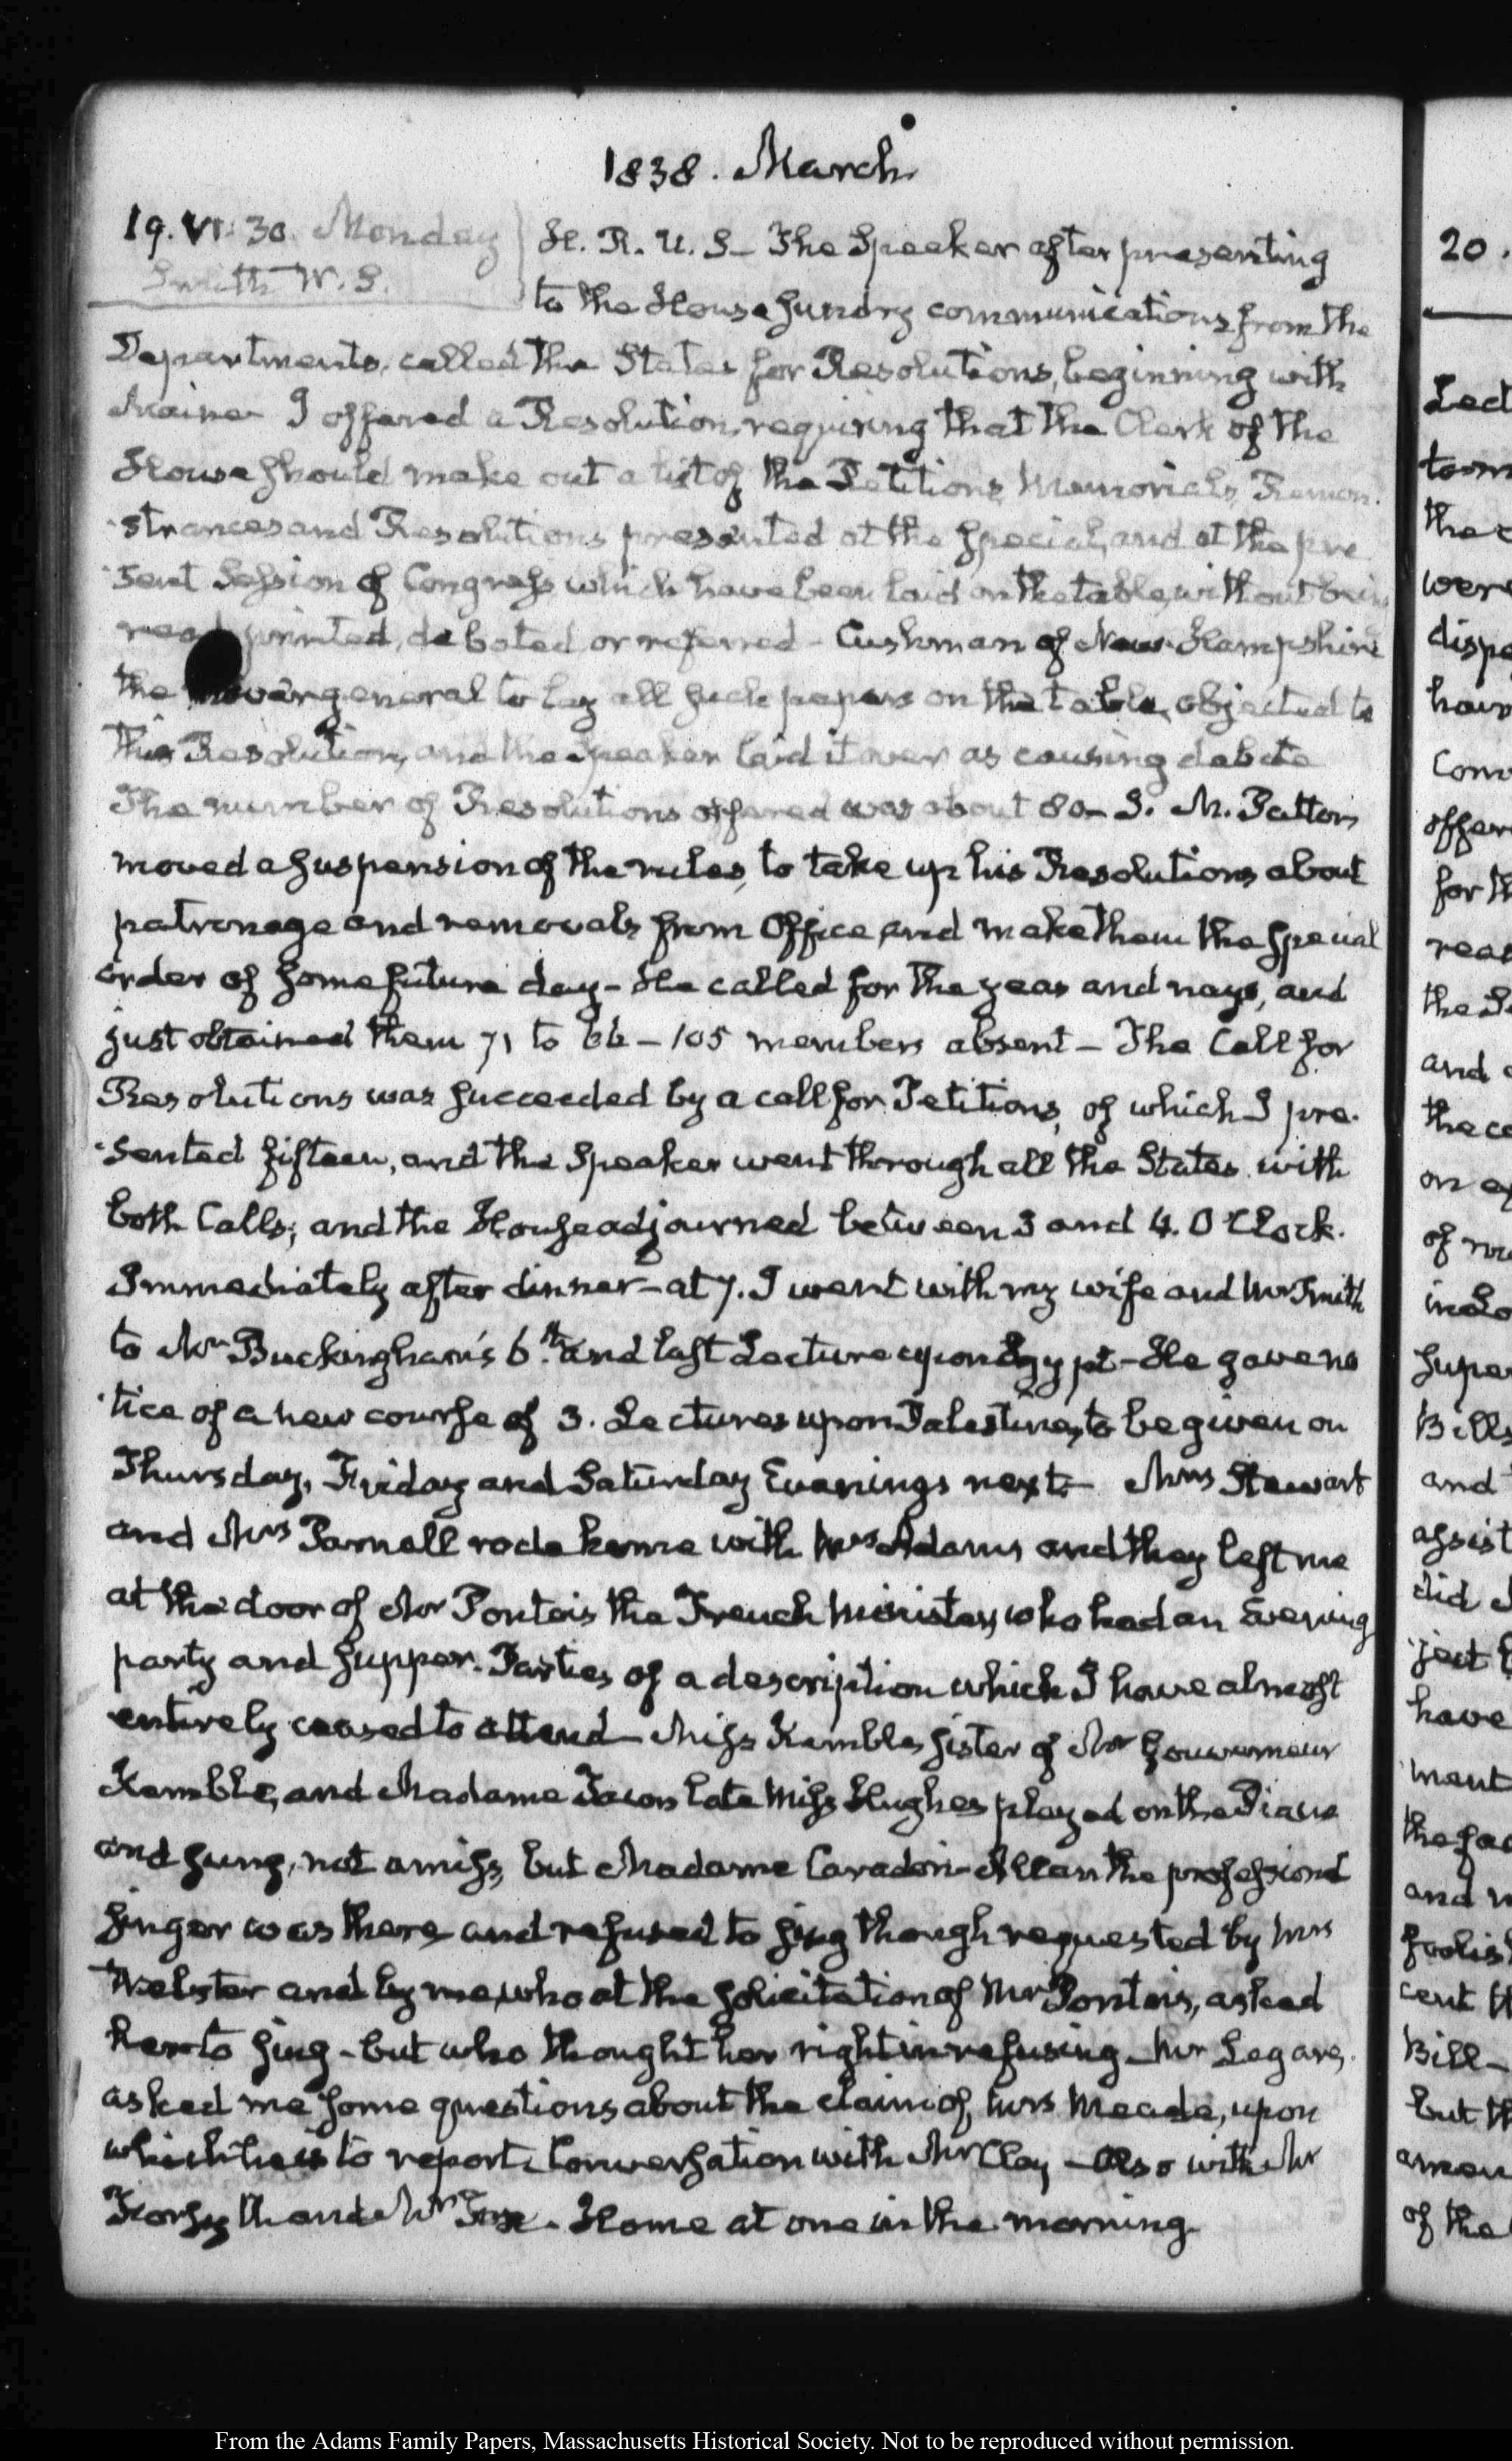 1838. March
19. VI: 30. Monday
Smith W. S.
H. R. U. S- The Speaker after presenting
to the House sundry communications from the
Departments, called the States for Resolutions, beginning with
Maine- I offered a Resolution, requiring that the Clerk of the
House should make out a list of the Petitions, Memorials, Remon-
-strances and Resolutions presented at the special, and at the pre
-sent Session of Congress which have been laid on the table, without being
read, printed, debated, or referred- Cushman of New-Hampshire
the mover general to lay all such papers on the table, objected to
this Resolution, and the Speaker laid it over as causing debate
The number of Resolutions offered was about 80- J. M. Patton
moved a suspension of the rules, to take up his Resolutions about
patronage and removals from Office, and make them the special
order of some future day- He called for the yeas and nays, and
just obtained them 71 to 66- 105 members absent- The Call for
Resolutions was succeeded by a call for Petitions, of which I pre-
-sented fifteen, and the Speaker went through all the States with
both Calls; and the House adjourned between 3 and 4. O'Clock.
Immediately after dinner- at 7. I went with my wife and Mr Smith
to Mr Buckingham's 6th. and last Lecture upon Egypt- He gave no
-tice of a new course of 3. Lectures upon Palestine, to be given on
Thursday, Friday and Saturday Evenings next- Mrs Stewart
and Mrs Parnell rode home with Mrs Adams and they left me
at the door of Mr Pontois the French Minister, who had an Evening
party and supper. Parties of a description which I have almost
entirely ceased to attend- Miss Kemble, sister of Mr Gouverneur
Kemble, and Madame Late Miss Hughes played on the Piano
and sung, not amiss, but Madame Caradori-Allan the professional
singer was there and refused to sing though requested by Mrs
Webster and by me, who at the solicitation of Mr Pontois, asked
her to sing- but who thought her right in refusing- Mr Legare,
asked me some questions about the claim of Mrs Meade, upon
which he is to report- Conversation with Mr Clay- Also with Mr
Forsyth and Mr Fox- Home at one in the morning-
20.
Led
the
were
dispo
have
Com
offer
for th
read
and
on
of
Super
Bills
and
assist
did
have
ment
and
foolish
cent th
Bill-
but th
of the
From the Adams Family Papers, Massachusetts Historical Society. Not to be reproduced without permission.